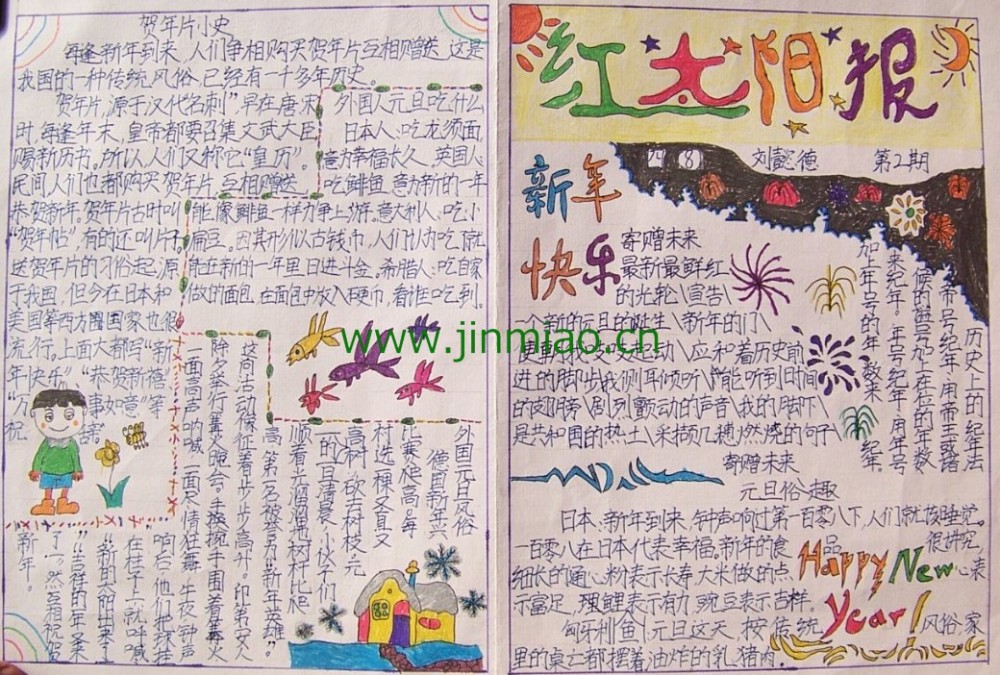 贺年片小史
每逢新年到来,人们争相购买贺年片互相赠送,这是
我国的一种传统风俗,已经有一千多年历史。
贺年片,源于汉代名刺"早在唐宋
时,每逢年末,皇帝都要召集文武大臣
赐新历书。所以人们又称它"皇历"。
民间人们也都购买贺年片,互相赠送
恭贺新年。贺年片古时叫
"贺年帖",有的还叫片子。
送贺年片的习俗起源
于我国,但今在日本和
美国等西方国家也很
流行。上面大都写"新
年快乐""恭贺新禧"
"万事如意"等
祝
外国人元旦吃什么
日本人:吃龙须面
意为幸福长久。英国人
吃鲜鱼,意为新的一年
能像鲜鱼一样力争上游。意大利人:吃小
扁豆。因其形似古钱币,人们认为吃
能在新的一年里日进斗金。希腊人:吃自家
做的面包,在面包中放入硬币,看谁吃到。
外国元旦风俗
德国新年六
比赛爬高。每
村选一棵又直又
高树,砍去树枝,元
旦清晨,小伙子们
顺着光溜溜树杆比爬
高,第一名被誉为"新年英雄"
这向活动像征着步步高升。印第安人
除夕举行篝火晚会。手挽手围着篝火
一面高声呐喊,一面尽情狂舞。午夜,钟声
响后,他们把球挂
在柱子上就呼喊
"新的太阳出来了!"
"吉祥的一年又来
了!"然后互相祝贺
新年。
红太阳报
29 8 刘懿德 第2期
新年
快乐
寄赠未来
最新最鲜红
的光轮\宣告\
一个新的元旦的诞生\新年的门\
应和着历史前
进的脚步我侧耳倾听\
剧烈颤动的声音\我的脚下\
是共和国的热土\采撷几穗燃烧的句子
寄赠未来
历史上的纪年法
帝号纪年:用帝王或诸
侯的谥号加上在位的年数
来纪年。年号纪年:用年号
加上年号的年数来纪年
元旦俗趣
日本:新年到来,钟声响过第一百零八下,人们就该睡觉。
一百零八在日本代表幸福,新年的食品很讲究,
细长的通心粉表示长寿,大米做的点心表
示富足,鲤鱼表示有力,豌豆表示吉祥。
匈牙利:元旦这天,按传统风俗,家
里的桌上都摆着油炸的乳猪肉。
Happy New
Year!
www.jinmiao.cn